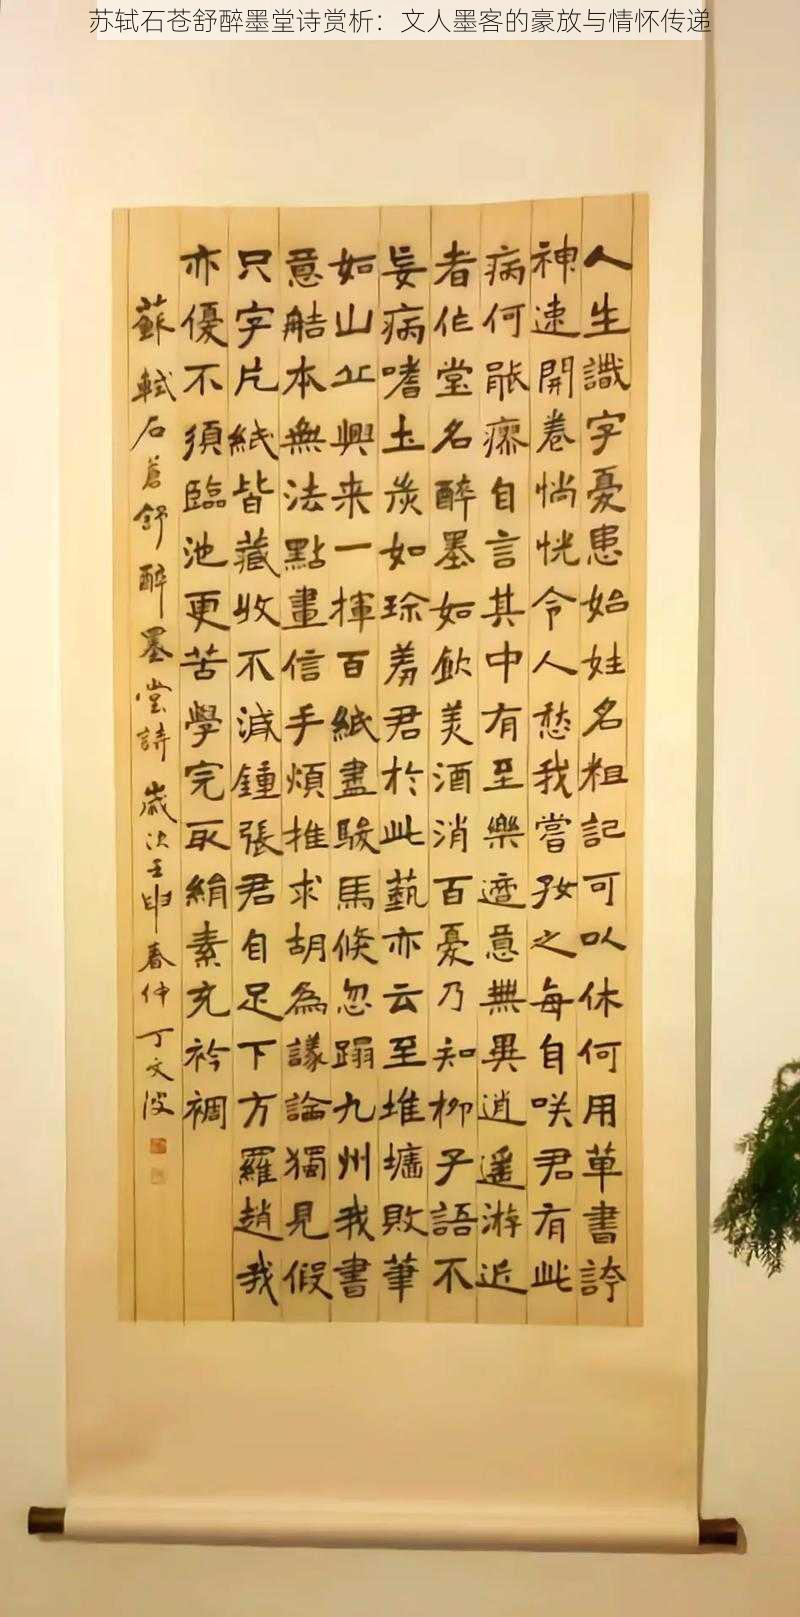 苏轼石苍舒醉墨堂诗赏析：文人墨客的豪放与情怀传递
人生識字憂患始姓名粗記可以休何用草書誇
神速開卷惝恍令人愁我嘗好之每自咲君有此
病何能瘳自言其中有至樂適意無異逍遙游近
者作堂名醉墨如飲美酒消百憂乃知柳子語不
妄病嗜土炭如珍羞君於此藝亦云至堆墻敗筆
如山丘興来一揮百紙盡駿馬倏忽蹋九州我書
意造本無法點畫信手煩推求胡為議論獨見假
只字片紙皆藏收不減鍾張君自足下方羅趙我
亦優不須臨池更苦學完取絹素充衿裯
蘇軾石蒼舒醉墨堂詩 歲次壬申春仲 丁文波